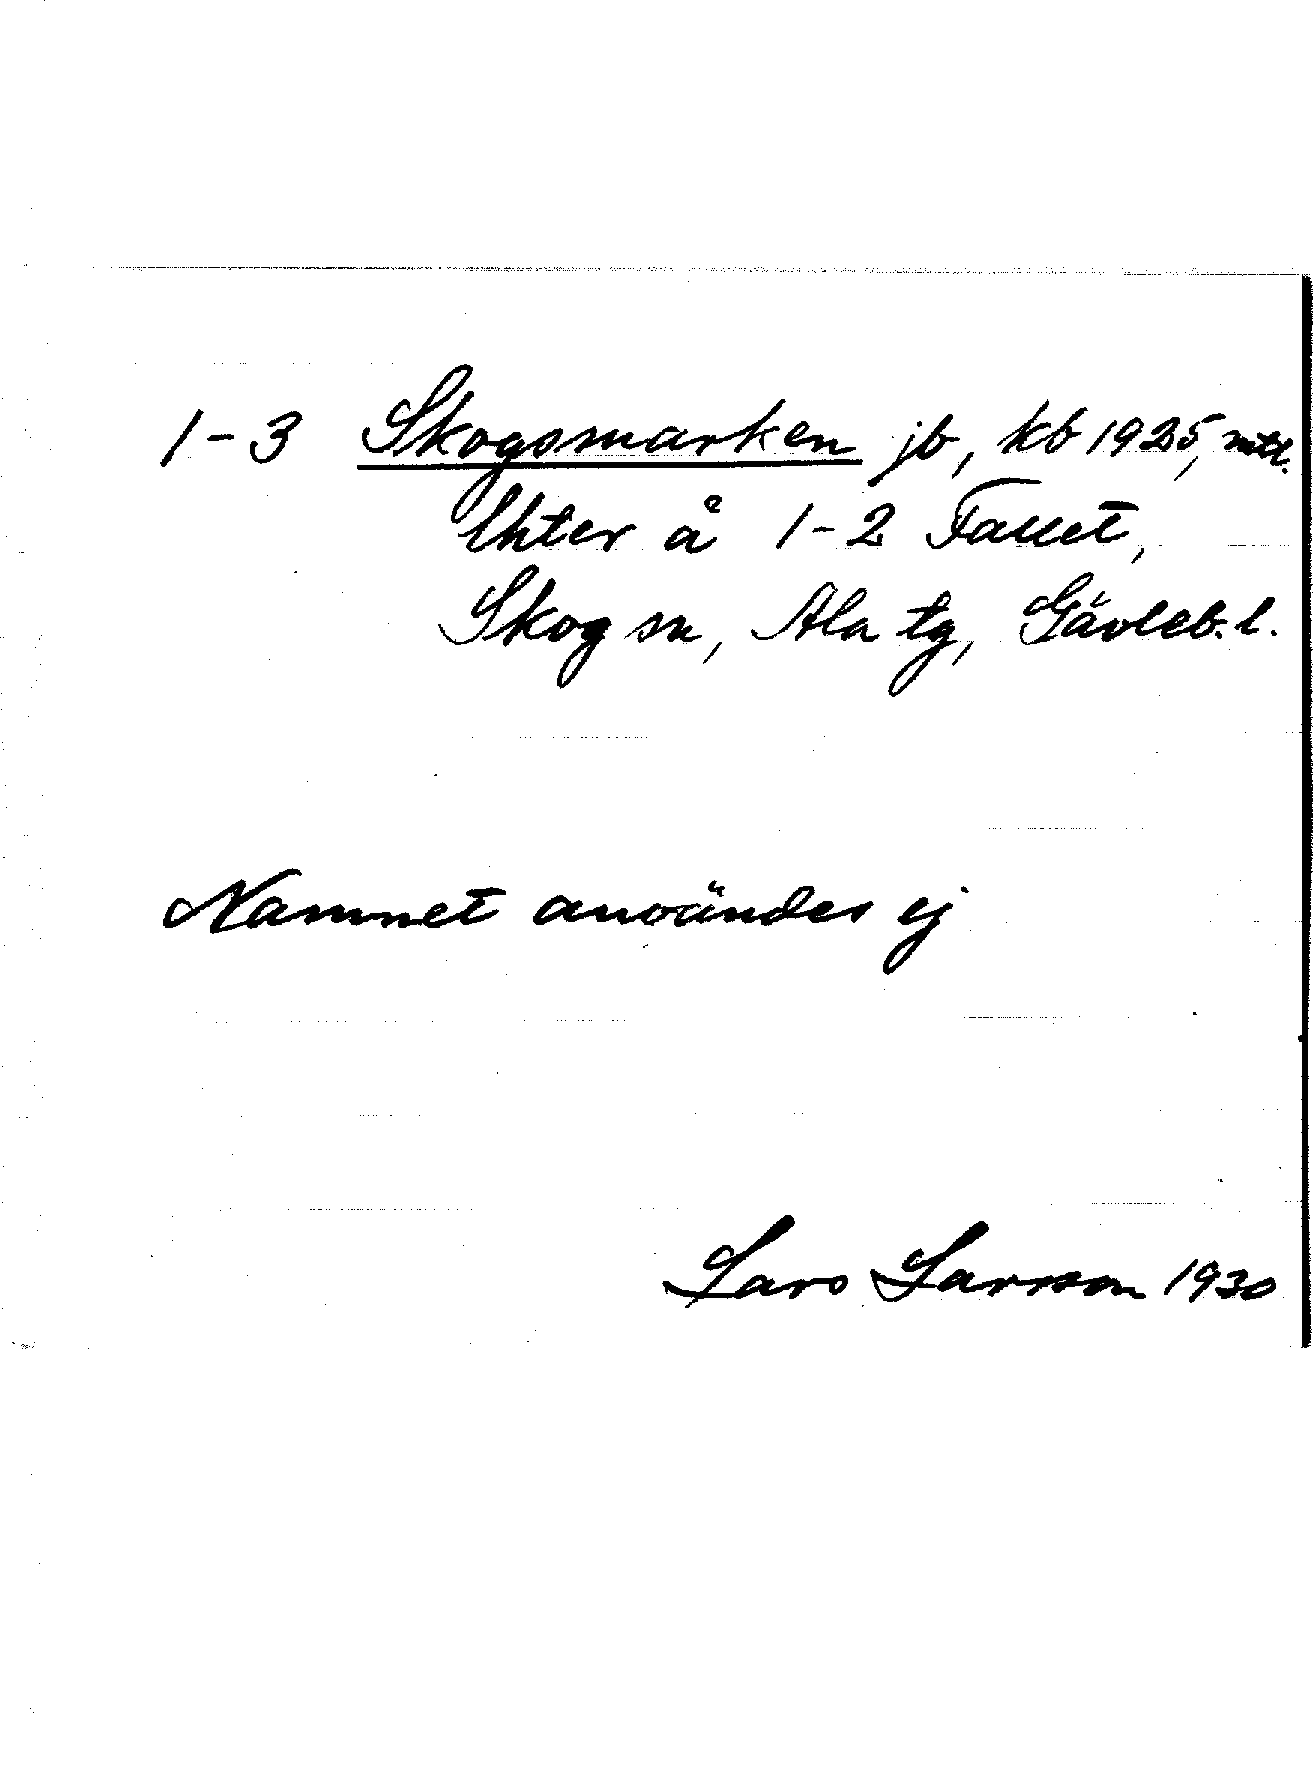 1-3 Skogsmarken jb, kb 1925, mtl.
Utter å 1-2 Fallet,
Skog sn, Ala tg, Gävleb. l.
Namnet användes ej
Lars Larsson 1930